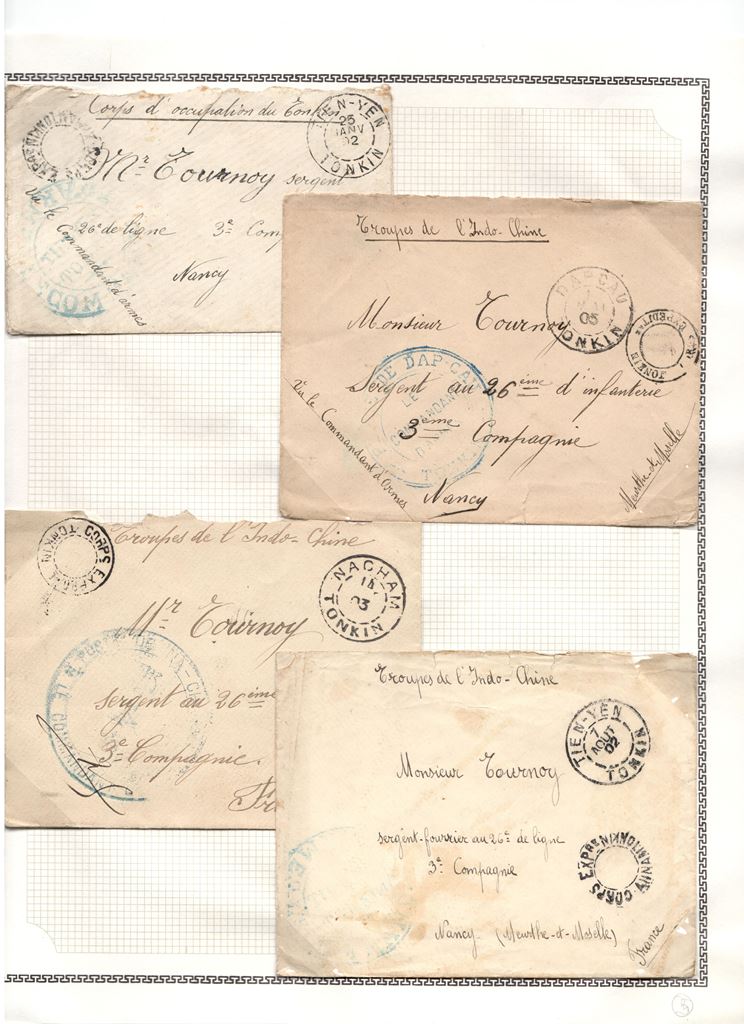 Corps d'occupation du Tonkin
TIEN-YEN
25
JANV
02
TONKIN
Mr Tournoy sergent
26e de ligne 3e Comp
Nancy
Vu le Commandant d'armes
Troupes de l'Indo-Chine
DAP-CAU
05
TONKIN
Monsieur Tournoy
Sergent au 26ème d'infanterie
3ème Compagnie
Nancy
Meurthe-et-Moselle
Vu le Commandant d'Armes
DE DAP-CAU
LE
COMMANDANT
TONKIN
CORPS EXPED
TONKIN
Troupes de l'Indo-Chine
NACHAM
03
TONKIN
Mr Tournoy
sergent au 26ème
3e Compagnie.
Fr
Troupes de l'Indo-Chine
TIEN-YEN
7
AOUT
02
TONKIN
Monsieur Tournoy
sergent-fourrier au 26e de ligne
3e Compagnie
CORPS EXP
Nancy (Meurthe-et-Moselle)
France